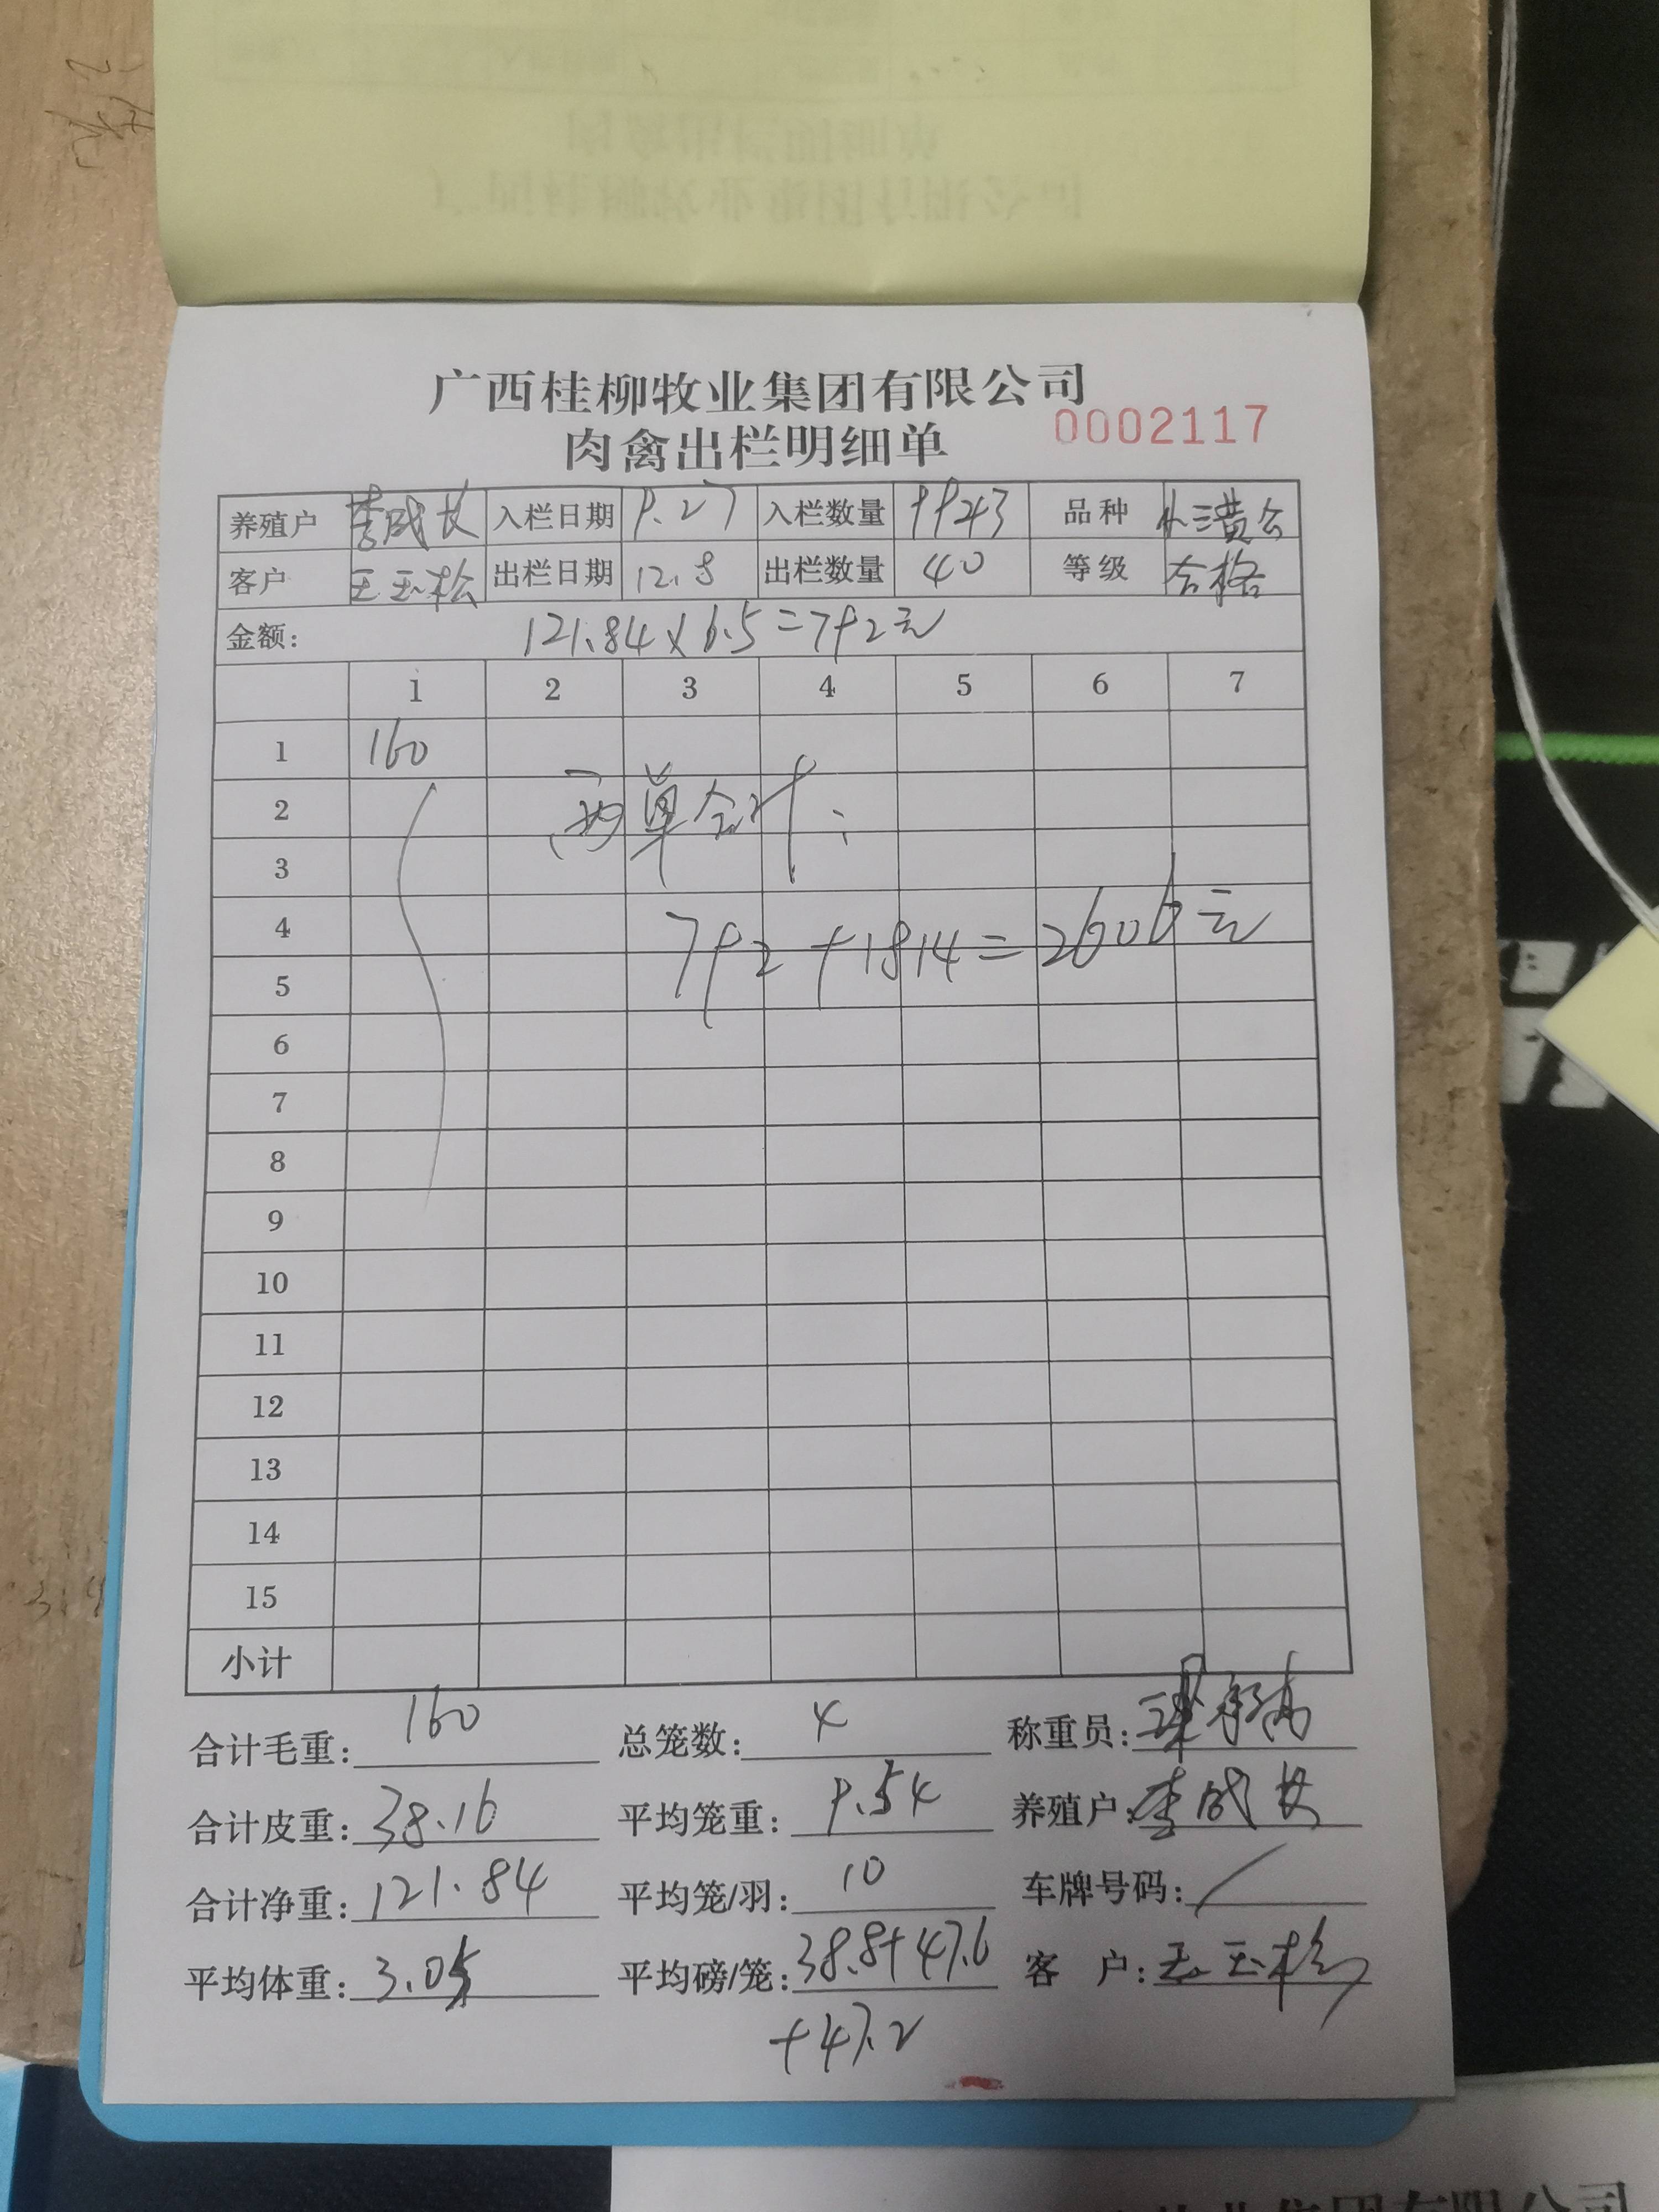 广西桂柳牧业集团有限公司
0002117
肉禽出栏明细单
养殖户 李成长 入栏日期 9.27 入栏数量 9943 品种
客户 王玉松 出栏日期 12.8 出栏数量 40 等级 合格
金额: 121.84×6.5=792元
1 2 3 4 5 6 7
1 160
2 两单合计:
3
4 792+1814=2606元
5
6
7
8
9
10
11
12
13
14
15
小计
合计毛重: 160 总笼数: 4 称重员:
合计皮重: 38.16 平均笼重: 9.54 养殖户: 李成长
合计净重: 121.84 平均笼/羽: 10 车牌号码: /
平均体重: 3.05 平均磅/笼: 38.8+47.6 客 户: 王玉松
+47.2